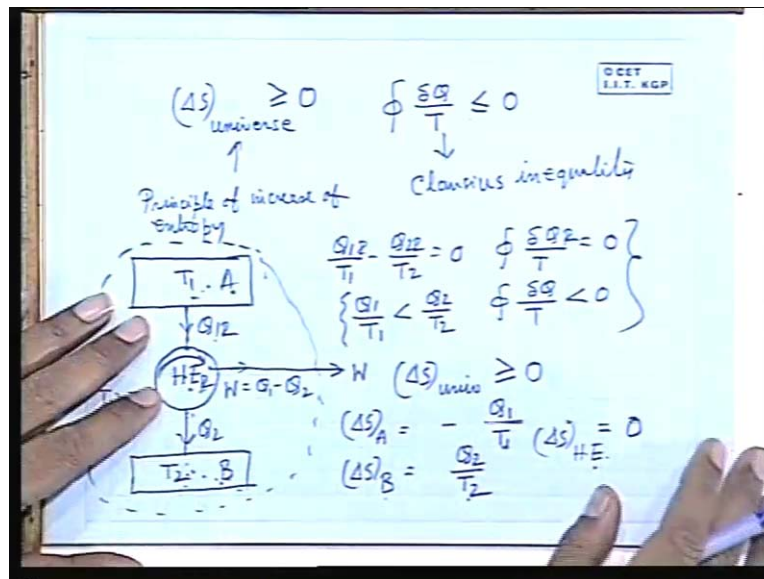 © CET
I.I.T. KGP
(ΔS)universe ≥ 0
∮ δQ/T ≤ 0
Clausius inequality
Principle of increase of
entropy
T1.. A
Q1R
HER
W = Q1 - Q2
W
Q2
T2... B
Q1R/T1 - Q2R/T2 = 0 ∮ δQR/T = 0
Q1/T1 < Q2/T2 ∮ δQ/T < 0
(ΔS)univ ≥ 0
(ΔS)A = - Q1/T1 (ΔS)H.E. = 0
(ΔS)B = Q2/T2